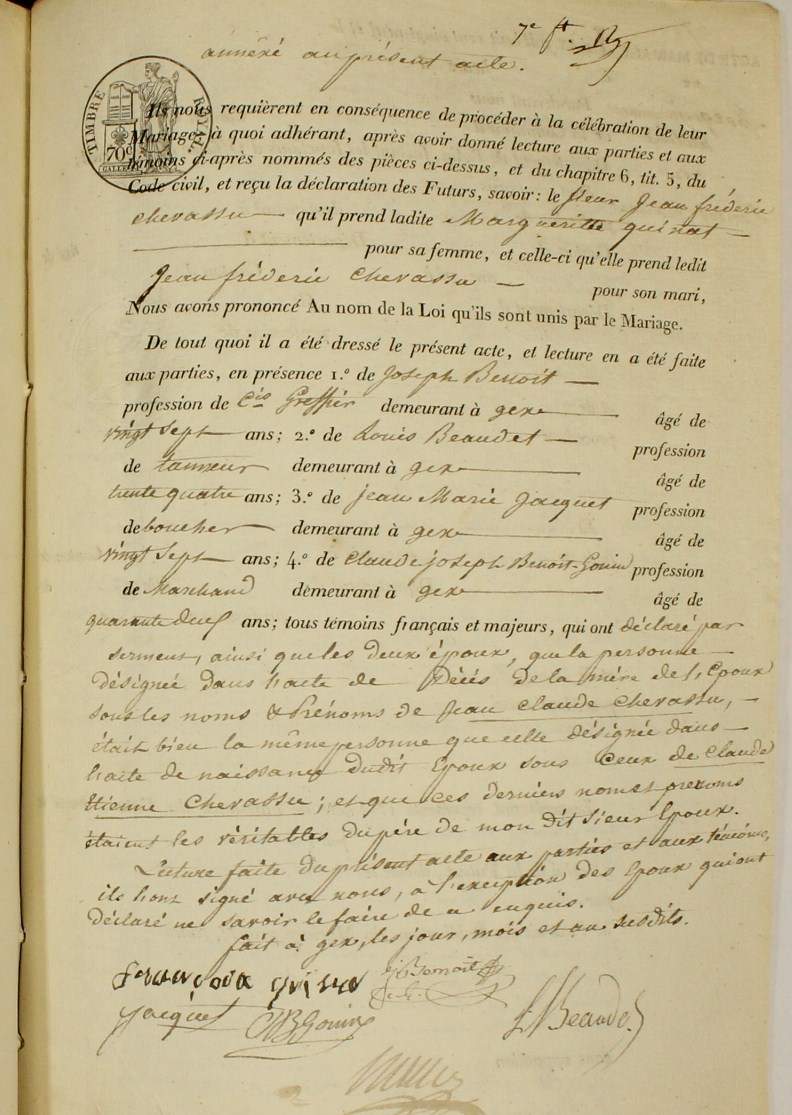 7e ft.
annéxé au présent acte.
TIMBRE ROYAL
70c
Ils nous requièrent en conséquence de procéder à la célébration de leur
Mariage, à quoi adhérant, après avoir donné lecture aux parties et aux
témoins ci-après nommés des pièces ci-dessus, et du chapitre 6, tit. 5, du
Code civil, et reçu la déclaration des Futurs, savoir : le sieur Jean fréderic
Chevassu — qu'il prend ladite Margueritte quinat —
— pour sa femme, et celle-ci qu'elle prend ledit
Jean fréderic Chevassu — pour son mari,
Nous avons prononcé Au nom de la Loi qu'ils sont unis par le Mariage.
De tout quoi il a été dressé le présent acte, et lecture en a été faite
aux parties, en présence 1.º de Joseph Benoit —
profession de Cis Greffier demeurant à gex — âgé de
vingt sept ans; 2.º de Louis Beaudet — profession
de tanneur demeurant à gex — âgé de
trente quatre ans; 3.º de Jean Marie Jacquet profession
de boucher demeurant à gex — âgé de
vingt sept ans; 4.º de Claude joseph Benoit-Gonin profession
de Marchand demeurant à gex — âgé de
quarante deux ans; tous témoins français et majeurs, qui ont déclaré par
serment, ainsi que les deux époux, que la personne
désignée dans l'acte de Décés de la mère de l'Epoux
sous les noms & Prénoms de Jean Claude Chevassu, —
était bien la même personne que celle désignée dans —
l'acte de naissance dudit Epoux sous ceux de Claude
Etienne Chevassu; et que ces derniers noms et prenoms
étaient les véritables du père de mon dit Sieur Epoux.
Lecture faite du présent acte aux parties et aux témoins,
ils l'ont signé avec nous, à l'exception des Epoux qui ont
déclaré ne savoir le faire de ce enquis.
fait à gex, les jour, mois et an susdits.
françois quinat
J Benoit
Jacquet
CJBGonin
L Beaudet